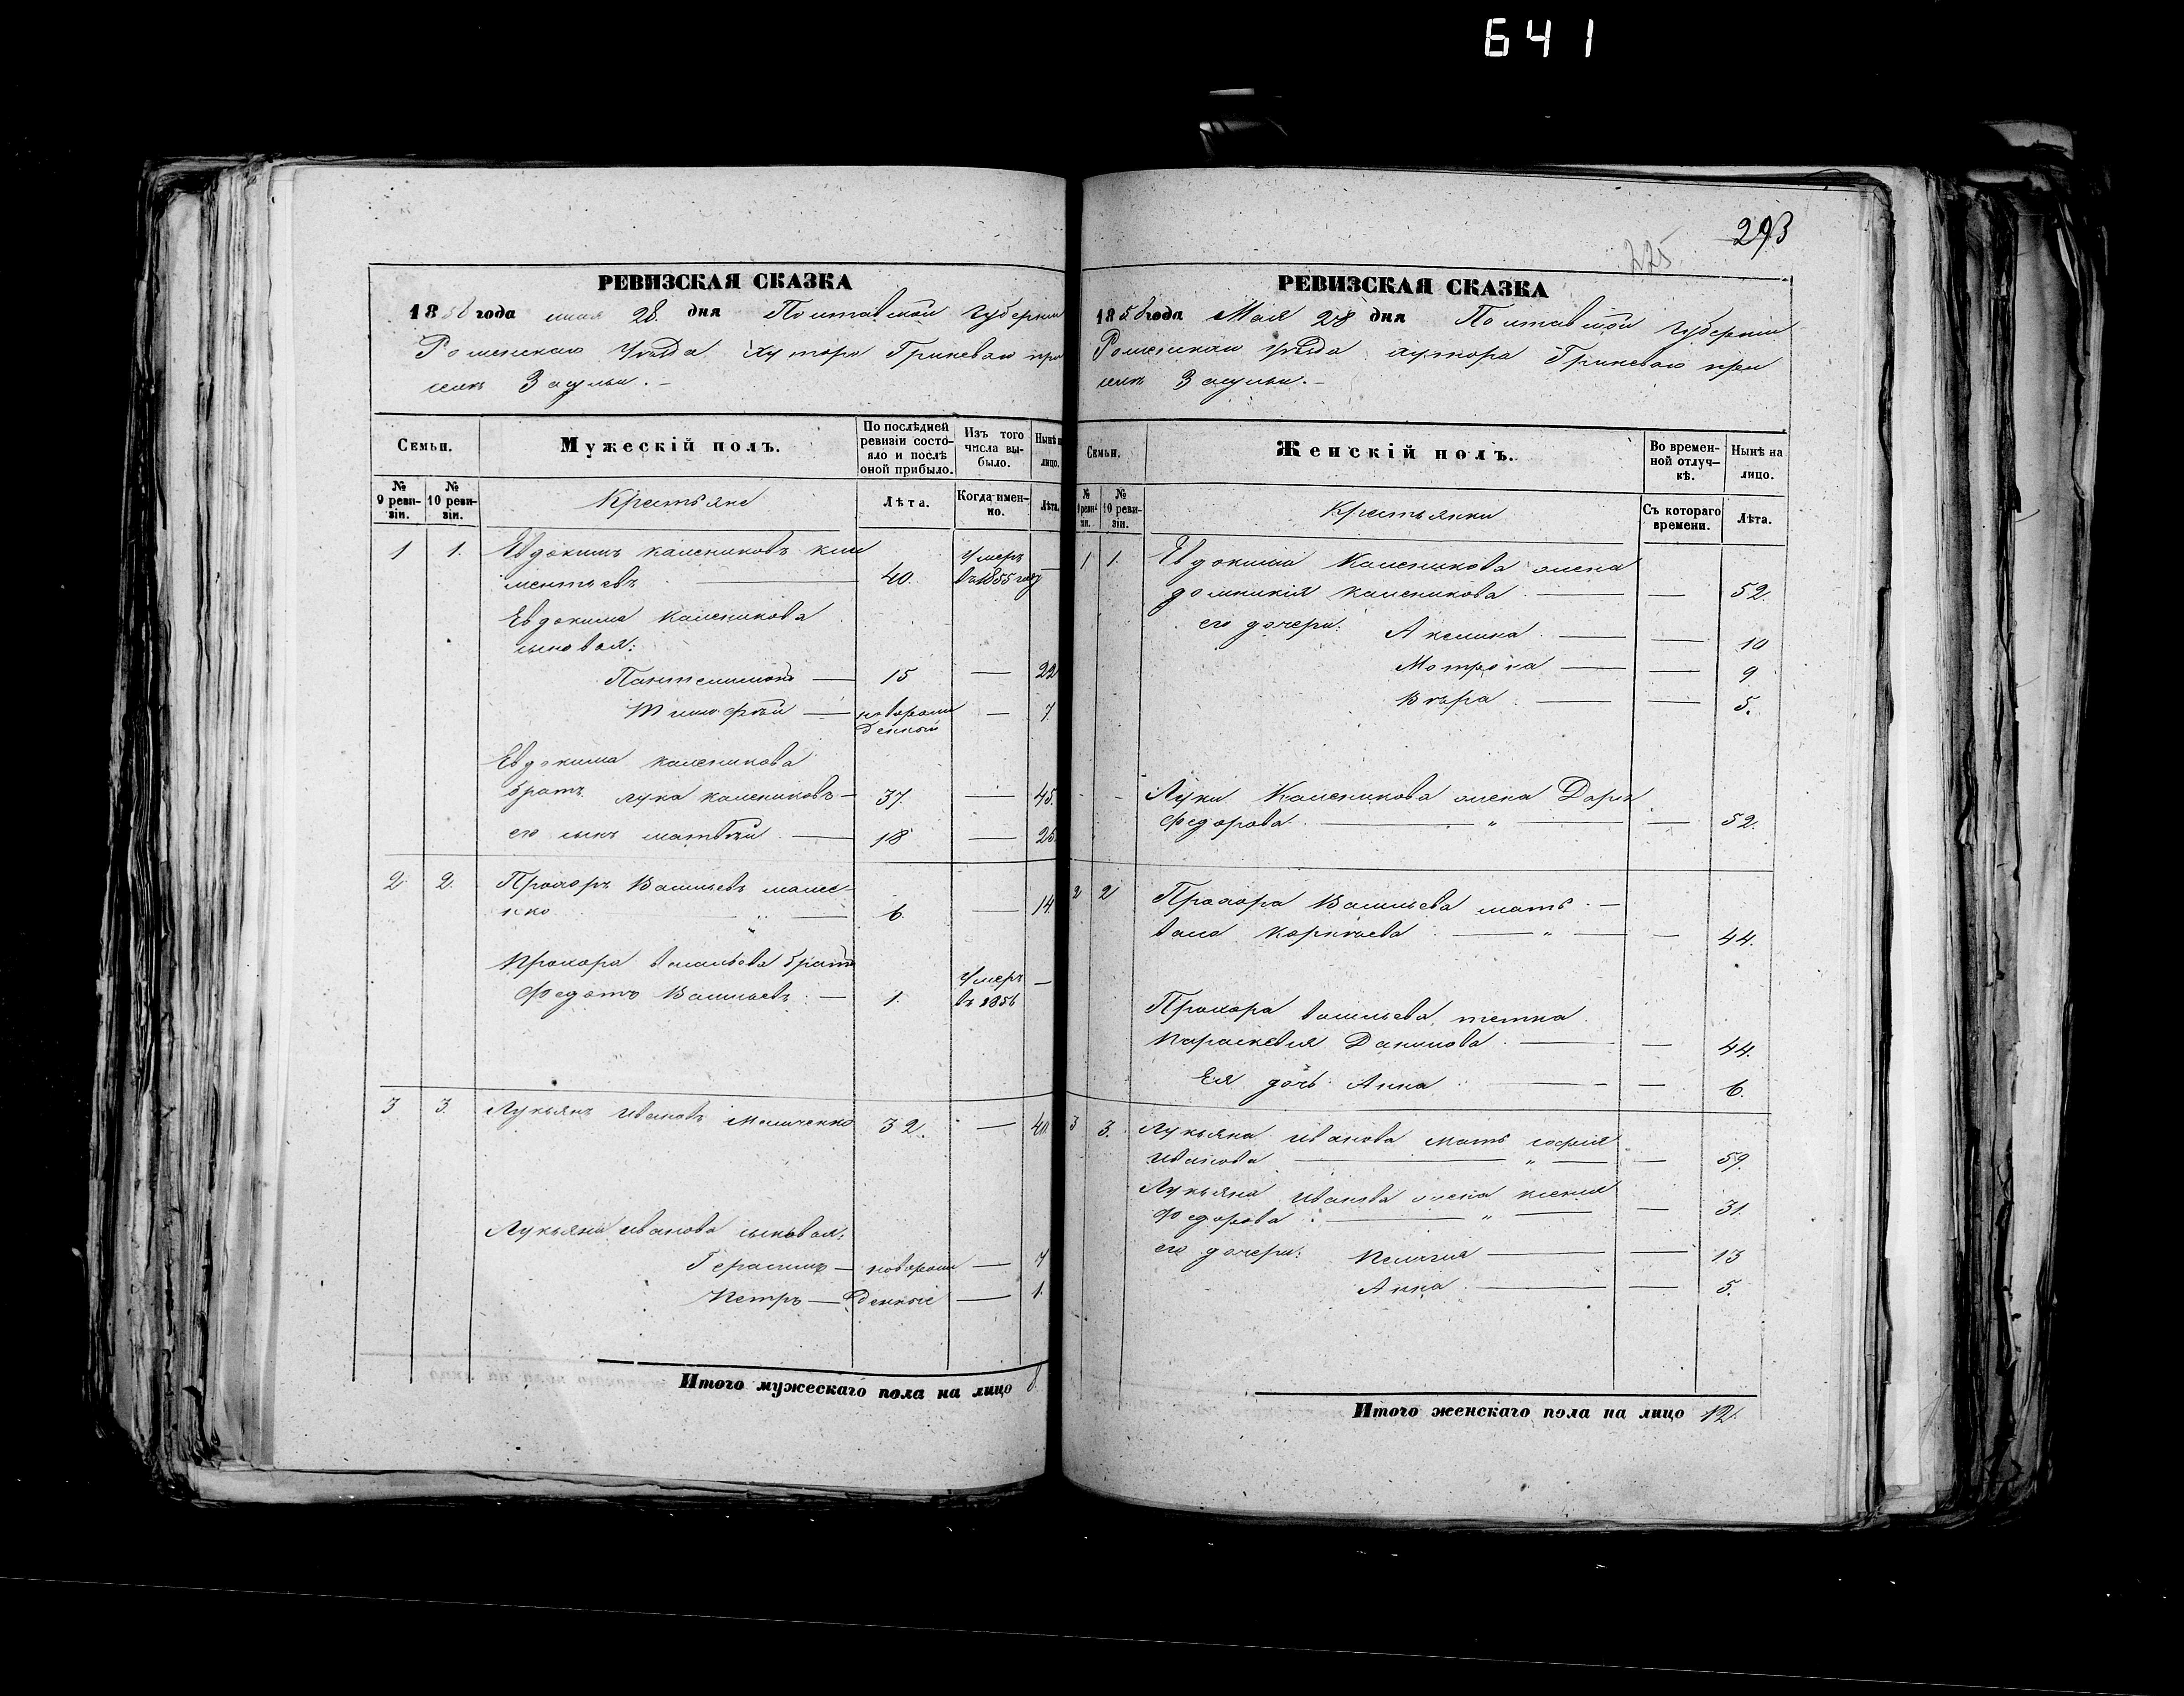 641
293
225
РЕВИЗСКАЯ СКАЗКА
1858 года мая 28 дня Полтавской Губернии
Роменскаго Уѣзда хутора Гриневаго при
селѣ Засульи.
Семьи.
Мужескій полъ.
По послѣдней ревизіи состояло и послѣ оной прибыло.
Изъ того числа выбыло.
Нынѣ на лицо.
№ 9 ревизіи.
№ 10 ревизіи.
Крестьяне
Лѣта.
Когда именно.
Лѣта.
1 1. Евдокимъ Калениковъ Кли
ментьевъ 40. Умеръ въ 1855 году —
Евдокима Каленикова
сыновья:
Пантелимонъ — 15 — 22
Тимофѣй — новорожденный — 7.
Евдокима Каленикова
братъ Лука Калениковъ — 37. — 45.
его сынъ Матвѣй — 18 — 25.
2 2. Прохоръ Васильевъ
6. — 14.
Прохора Васильева братъ
Федотъ Васильевъ — 1. Умеръ въ 1856 —
3 3. Лукьянъ Ивановъ 32. — 40.
Лукьяна Иванова сыновья:
Герасимъ — новорож — 7
Петръ — денные — 1.
Итого мужескаго пола на лицо 8.
РЕВИЗСКАЯ СКАЗКА
1858 года Мая 28 дня Полтавской Губерніи
Роменскаго уѣзда хутора Гриневаго при
селѣ Засульи.
Семьи.
Женскій полъ.
Во временной отлучкѣ.
Нынѣ на лицо.
№ 9 ревизіи.
№ 10 ревизіи.
Крестьянки
Съ котораго времени.
Лѣта.
1 1. Евдокима Каленикова жена
Домникія Каленикова — — 52.
его дочери: Акилина — — 10
Мотрона — — 9
Вѣра — — 5.
Луки Каленикова жена Дарья
Федорова — „ — — 52.
2 2 Прохора Васильева мать
— „ — — 44.
Прохора Васильева тетка
Параскевія Данилова — — 44.
Ея дочь Анна — — 6.
3 3. Лукьяна Иванова мать Софія
Иванова — „ — — 59.
Лукьяна Иванова жена Ксенія
Федорова — „ — — 31.
его дочери: Пелагія — — 13
Анна — — 5.
Итого женскаго пола на лицо 12.